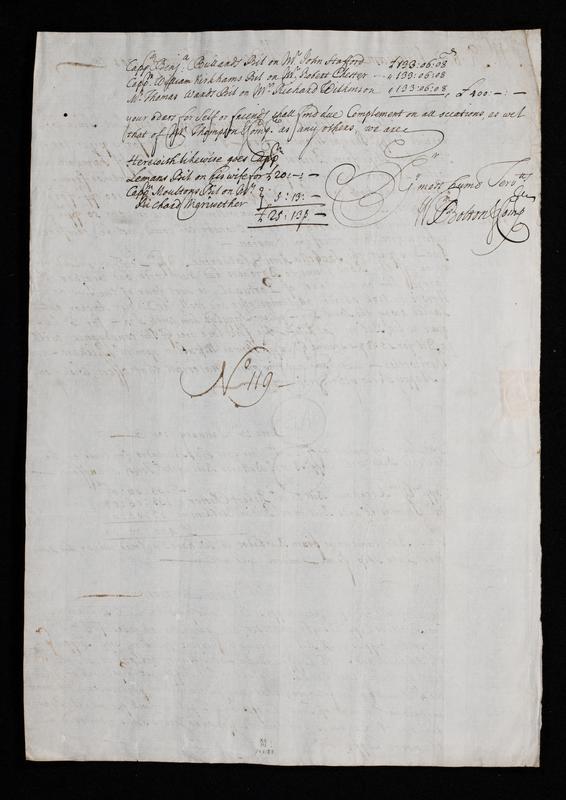 Capp.n Benj.a Rickards Bil on M.r John Stafford -- £ 133:06:08
Capp.n William Kirkhams Bil on M.r Robert Chester -- 133:06:08
M.r Thomas Waads Bil on M.r Richard Dickinson 133:06:08, £ 400:-:-
your ord.rs for self or friends shall find due Complement on all occations, as wel
that of M.r Thompson & Comp. as any others, we are
Herewith likewise goes Capp.n
Lemans Bil on his wife for £ 20:-:-
Capp.n Moultons Bil on M.r
Richard Meriwether 5:13:-
£ 25:13:-
S.r
Y.r most humb Serv.ts
W.m Bolton & Comp
N.o 119